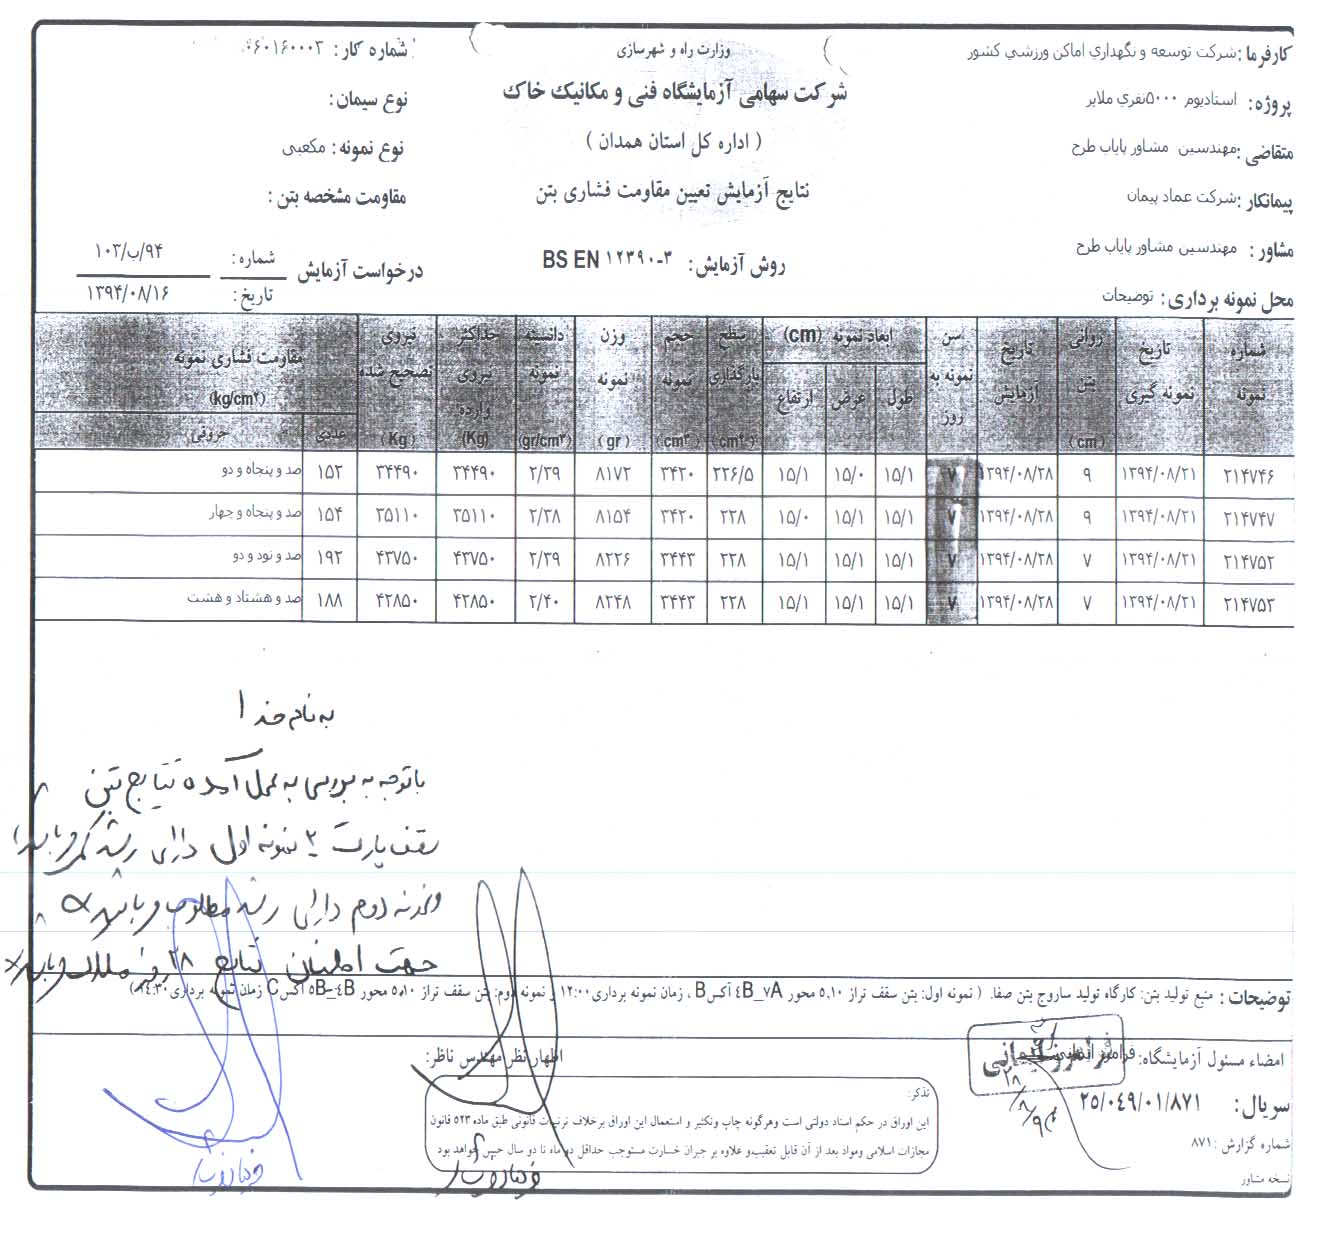 کارفرما : شرکت توسعه و نگهداري اماکن ورزشي کشور
پروژه : استادیوم ۵۰۰۰نفري ملایر
متقاضی : مهندسین مشاور پایاب طرح
پیمانکار : شرکت عماد پیمان
مشاور : مهندسین مشاور پایاب طرح
محل نمونه برداری : توضیحات
وزارت راه و شهرسازی
شرکت سهامی آزمایشگاه فنی و مکانیک خاک
( اداره کل استان همدان )
نتایج آزمایش تعیین مقاومت فشاری بتن
روش آزمایش: BS EN ۱۲۳۹۰-۳
شماره کار : ۰۶۰۱۶۰۰۰۳
نوع سیمان :
نوع نمونه : مکعبی
مقاومت مشخصه بتن :
درخواست آزمایش شماره : ۹۴/ب/۱۰۳
تاریخ : ۱۳۹۴/۰۸/۱۶
شماره نمونه | تاریخ نمونه گیری | روانی بتن (cm) | تاریخ آزمایش | سن نمونه به روز | ابعاد نمونه (cm) طول عرض ارتفاع | سطح بارگذاری (cm²) | حجم نمونه (cm³) | وزن نمونه (gr) | دانسیته نمونه (gr/cm³) | حداکثر نیروی وارده (Kg) | نیروی تصحیح شده (Kg) | مقاومت فشاری نمونه (kg/cm²) عددی حروفی
۲۱۴۷۴۶ ۱۳۹۴/۰۸/۲۱ ۹ ۱۳۹۴/۰۸/۲۸ ۷ ۱۵/۱ ۱۵/۰ ۱۵/۱ ۲۲۶/۵ ۳۴۲۰ ۸۱۷۲ ۲/۳۹ ۳۴۴۹۰ ۳۴۴۹۰ ۱۵۲ صد و پنجاه و دو
۲۱۴۷۴۷ ۱۳۹۴/۰۸/۲۱ ۹ ۱۳۹۴/۰۸/۲۸ ۷ ۱۵/۱ ۱۵/۱ ۱۵/۰ ۲۲۸ ۳۴۲۰ ۸۱۵۴ ۲/۳۸ ۳۵۱۱۰ ۳۵۱۱۰ ۱۵۴ صد و پنجاه و چهار
۲۱۴۷۵۲ ۱۳۹۴/۰۸/۲۱ ۷ ۱۳۹۴/۰۸/۲۸ ۷ ۱۵/۱ ۱۵/۱ ۱۵/۱ ۲۲۸ ۳۴۴۳ ۸۲۲۶ ۲/۳۹ ۴۳۷۵۰ ۴۳۷۵۰ ۱۹۲ صد و نود و دو
۲۱۴۷۵۳ ۱۳۹۴/۰۸/۲۱ ۷ ۱۳۹۴/۰۸/۲۸ ۷ ۱۵/۱ ۱۵/۱ ۱۵/۱ ۲۲۸ ۳۴۴۳ ۸۲۴۸ ۲/۴۰ ۴۲۸۵۰ ۴۲۸۵۰ ۱۸۸ صد و هشتاد و هشت
به نام خدا
با توجه به بررسی به عمل آمده نتایج بتن
سقف پارت ۲ نمونه اول دارای رشد کم می باشد
و نمونه دوم دارای رشد مطلوب می باشد
جهت اطمینان نتایج ۲۸ روزه ملاک می باشد
توضیحات : منبع تولید بتن: کارگاه تولید ساروج بتن صفا. ( نمونه اول: بتن سقف تراز ۵.۱۰ محور ۴B_۷A آکس B ، زمان نمونه برداری ۱۲:۰۰ و نمونه دوم: بتن سقف تراز ۵.۱۰ محور ۵B_۴B آکس C زمان نمونه برداری ۱۴:۳۰ )
امضاء مسئول آزمایشگاه: فرامرز ایمانی
سریال: ۲۵/۰۴۹/۰۱/۸۷۱
شماره گزارش : ۸۷۱
نسخه مشاور
اظهار نظر مهندس ناظر:
تذکر:
این اوراق در حکم اسناد دولتی است وهرگونه چاپ وتکثیر و استعمال این اوراق برخلاف ترتیبات قانونی طبق ماده ۵۲۳ قانون
مجازات اسلامی ومواد بعد از آن قابل تعقیب،و علاوه بر جبران خسارت مستوجب حداقل دو ماه تا دو سال حبس خواهد بود